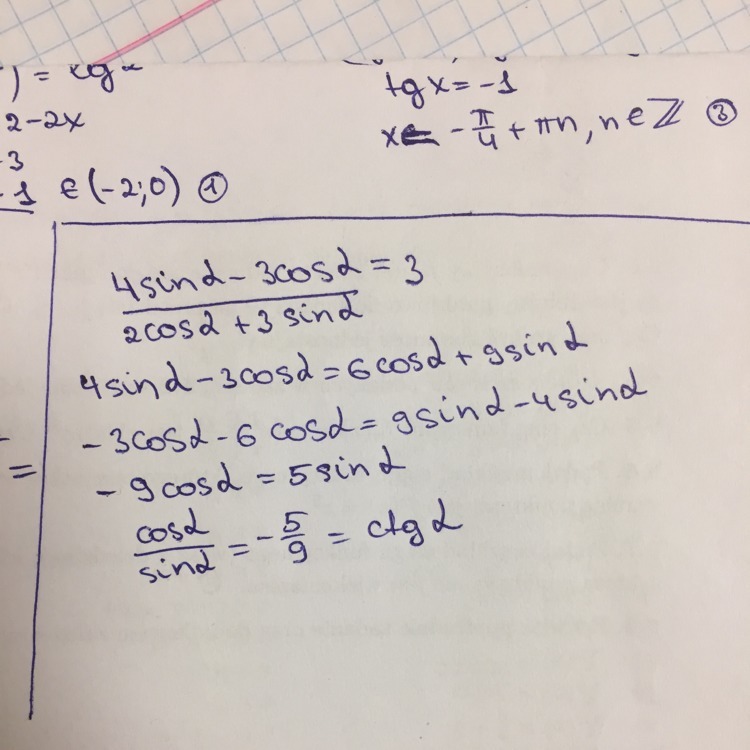 ) = ctg
2-2x
-3
-1 ∈ (-2; 0) ①
tg x = -1
x ∈ -π/4 + πn, n ∈ ℤ ③
(4sinα - 3cosα)/(2cosα + 3sinα) = 3
4sinα - 3cosα = 6cosα + 9sinα
-3cosα - 6cosα = 9sinα - 4sinα
-9cosα = 5sinα
cosα/sinα = -5/9 = ctgα
=